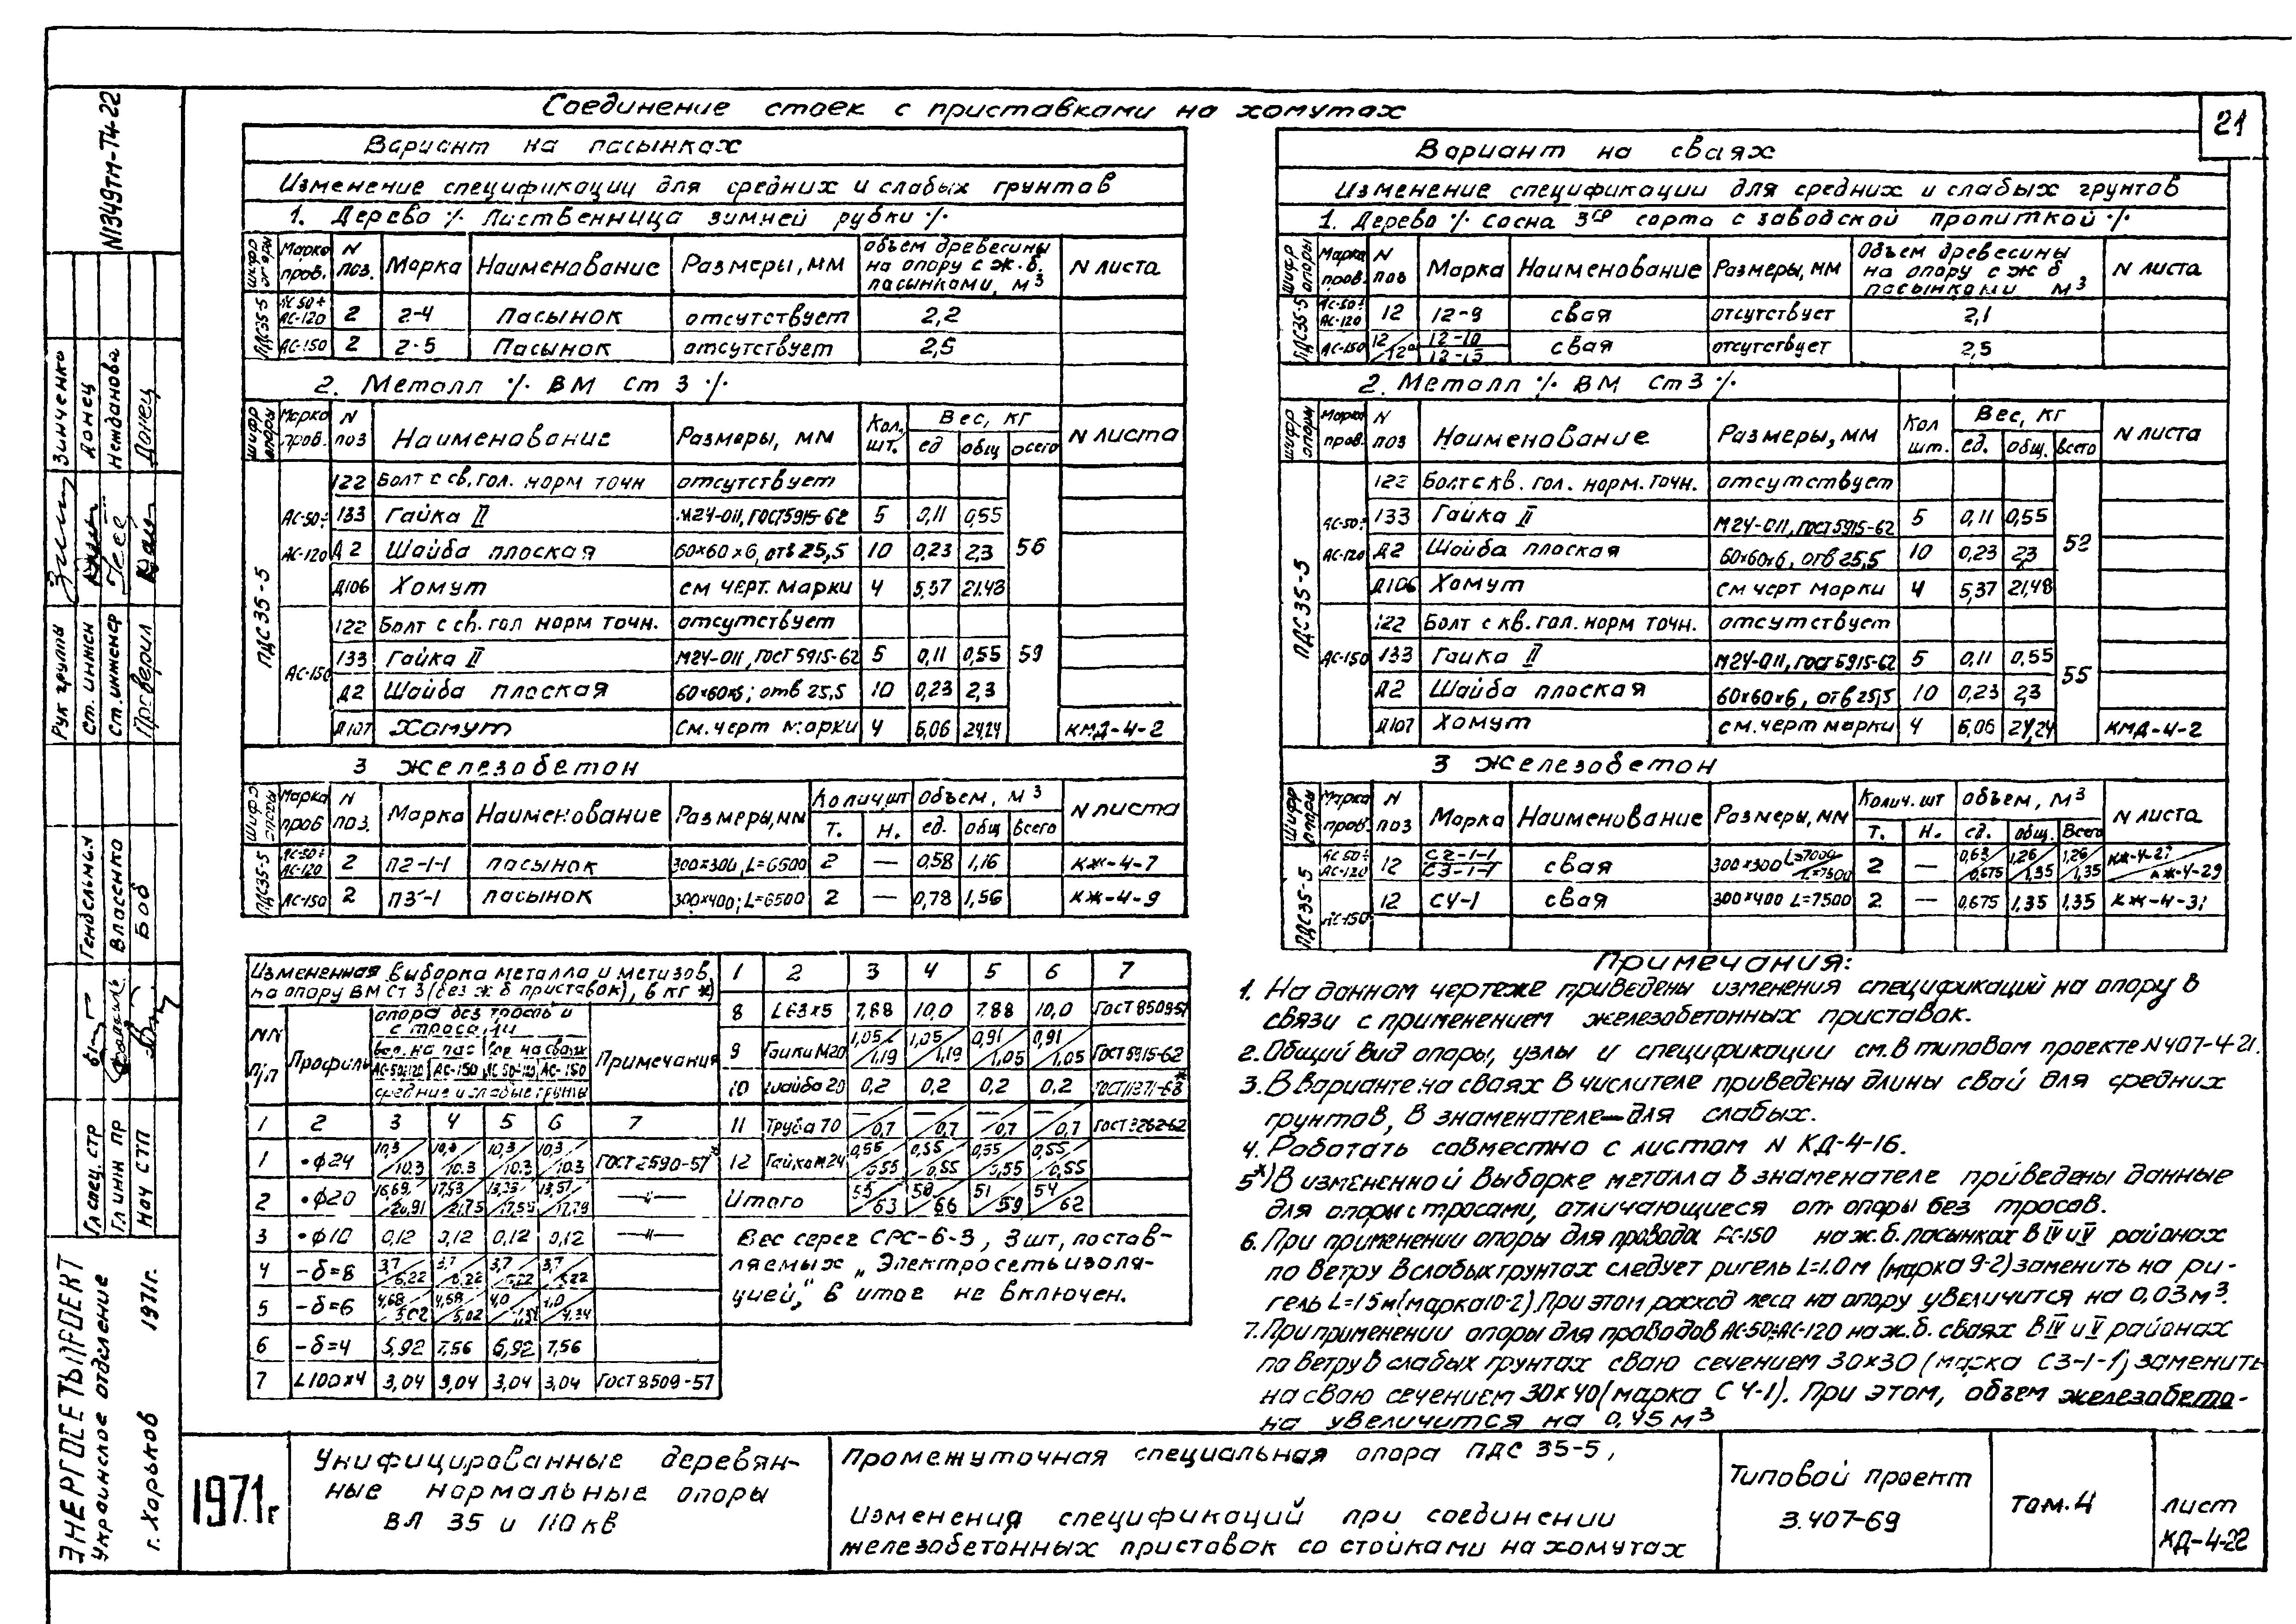 Соединение стоек с приставками на хомутах
21
N1349тм-Т4-22
Вариант на пасынках
Изменение спецификации для средних и слабых грунтов
1. Дерево ·/. Лиственница зимней рубки ·/.
Шифр опоры | Марка пров. | N поз. | Марка | Наименование | Размеры, мм | Объем древесины на опору с ж.б. пасынками, м3 | N листа
ПДС35-5 | АС-50÷АС-120 | 2 | 2-4 | Пасынок | отсутствует | 2,2
АС-150 | 2 | 2-5 | Пасынок | отсутствует | 2,5
2. Металл ·/. ВМ Ст 3 ·/.
Шифр опоры | Марка пров. | N поз | Наименование | Размеры, мм | Кол. шт. | Вес, кг | ед | общ | всего | N листа
ПДС35-5 | АС-50÷АС-120 | 122 | Болт с кв. гол. норм точн | отсутствует
133 | Гайка II | М24-011, ГОСТ5915-62 | 5 | 0,11 | 0,55 | 56
Д2 | Шайба плоская | 60×60×6, отв 25,5 | 10 | 0,23 | 2,3
Д106 | Хомут | см черт. марки | 4 | 5,37 | 21,48
АС-150 | 122 | Болт с кв. гол норм точн. | отсутствует
133 | Гайка II | М24-011, ГОСТ 5915-62 | 5 | 0,11 | 0,55 | 59
Д2 | Шайба плоская | 60×60×6; отв 25,5 | 10 | 0,23 | 2,3
Д107 | Хомут | См. черт марки | 4 | 6,06 | 24,24 | КМД-4-2
3 железобетон
Шифр опоры | Марка пров | N поз. | Марка | Наименование | Размеры, мм | Колич, шт | Т. | Н. | Объем, м3 | ед. | общ | всего | N листа
ПДС35-5 | АС-50÷АС-120 | 2 | П2-1-1 | пасынок | 300×300, L=6500 | 2 | — | 0,58 | 1,16 | КЖ-4-7
АС-150 | 2 | П3-1 | пасынок | 300×400; L=6500 | 2 | — | 0,78 | 1,56 | КЖ-4-9
Измененная выборка металла и метизов
на опору ВМ Ст 3 (без ж б приставок), в кг *)
NN п/п | Профиль | опора без троса и с тросами | вар. на пас | вар на сваях | Примечания
АС-50÷120 | АС-150 | АС 50÷120 | АС-150
средние и слабые грунты
1 | 2 | 3 | 4 | 5 | 6 | 7
1 | •ф24 | 10,3/10.3 | 10,3/10.3 | 10,3/10.3 | 10,3/10.3 | ГОСТ 2590-57*
2 | •ф20 | 16,69/20,91 | 17,53/21,75 | 13,33/17,55 | 13,57/17,79 | —"—
3 | •ф10 | 0,12 | 0,12 | 0,12 | 0,12 | —"—
4 | -δ=8 | 3,7/6,22 | 3,7/6,22 | 3,7/6,22 | 3,7/6,22
5 | -δ=6 | 4,68/5,02 | 4,68/5,02 | 4,0/4,34 | 4,0/4,34
6 | -δ=4 | 5,92 | 7,56 | 6,92 | 7,56
7 | L100×4 | 3,04 | 3,04 | 3,04 | 3,04 | ГОСТ 8509-57
1 | 2 | 3 | 4 | 5 | 6 | 7
8 | L63×5 | 7,88 | 10,0 | 7,88 | 10,0 | ГОСТ 8509-57
9 | Гайки М20 | 1,05/1,19 | 1,05/1,19 | 0,91/1,05 | 0,91/1,05 | ГОСТ 5915-62
10 | Шайба 20 | 0,2 | 0,2 | 0,2 | 0,2 | ГОСТ 11371-68*
11 | Труба 70 | —/0,7 | —/0,7 | —/0,7 | —/0,7 | ГОСТ 3262-62
12 | Гайка М24 | 0,55/0,55 | 0,55/0,55 | 0,55/0,55 | 0,55/0,55
Итого | 55/63 | 58/66 | 51/59 | 54/62
Вес серег СРС-6-3, 3 шт, постав-
ляемых „Электросетьизоля-
цией," в итог не включен.
Вариант на сваях
Изменение спецификации для средних и слабых грунтов
1. Дерево ·/. сосна 3го сорта с заводской пропиткой ·/.
Шифр опоры | Марка пров. | N поз | Марка | Наименование | Размеры, мм | Объем древесины на опору с ж б пасынками м3 | N листа
ПДС35-5 | АС-50÷АС-120 | 12 | 12-9 | свая | отсутствует | 2,1
АС-150 | 12/12а | 12-10/12-15 | свая | отсутствует | 2,5
2. Металл ·/. ВМ Ст 3 ·/.
Шифр опоры | Марка пров. | N поз | Наименование | Размеры, мм | Кол шт. | Вес, кг | ед. | общ. | всего | N листа
ПДС35-5 | АС-50÷АС-120 | 122 | Болт с кв. гол. норм. точн. | отсутствует
133 | Гайка II | М24-011, ГОСТ 5915-62 | 5 | 0,11 | 0,55 | 52
Д2 | Шайба плоская | 60×60×6, отв 25,5 | 10 | 0,23 | 2,3
Д106 | Хомут | см черт марки | 4 | 5,37 | 21,48
АС-150 | 122 | Болт с кв. гол. норм точн. | отсутствует
133 | Гайка II | М24-011, ГОСТ 5915-62 | 5 | 0,11 | 0,55 | 55
Д2 | Шайба плоская | 60×60×6, отв 25,5 | 10 | 0,23 | 2,3
Д107 | Хомут | см. черт марки | 4 | 6,06 | 24,24 | КМД-4-2
3 железобетон
Шифр опоры | Марка пров. | N поз | Марка | Наименование | Размеры, мм | Колич. шт | Т. | Н. | Объем, м3 | ед. | общ. | Всего | N листа
ПДС35-5 | АС 50÷АС-120 | 12 | С2-1-1/С3-1-1 | свая | 300×300 L=7000/L=7500 | 2 | — | 0,63/0,675 | 1,26/1,35 | 1,26/1,35 | КЖ-4-27/КЖ-4-29
АС-150 | 12 | С4-1 | свая | 300×400 L=7500 | 2 | — | 0,675 | 1,35 | 1,35 | КЖ-4-31
Примечания:
1. На данном чертеже приведены изменения спецификаций на опору в
связи с применением железобетонных приставок.
2. Общий вид опоры, узлы и спецификации см. в типовом проекте N407-4-21.
3. В варианте на сваях в числителе приведены длины свай для средних
грунтов, в знаменателе—для слабых.
4. Работать совместно с листом N КД-4-16.
5*) В измененной выборке металла в знаменателе приведены данные
для опоры с тросами, отличающиеся от опоры без тросов.
6. При применении опоры для провода АС-150 на ж.б. пасынках в IV и V районах
по ветру в слабых грунтах следует ригель L=1.0м (марка 9-2) заменить на ри-
гель L=1.5м (марка 10-2). При этом расход леса на опору увеличится на 0,03м3.
7. При применении опоры для проводов АС-50÷АС-120 на ж.б. сваях в IV и V районах
по ветру в слабых грунтах сваю сечением 30×30 (марка С3-1-1) заменить
на сваю сечением 30×40 (марка С4-1). При этом, объем железобето-
на увеличится на 0,45м3
Рук группы Зинченко
Ст. инжен Донец
Ст. инженер Нежданова
Проверил Донец
Гл спец. стр Гендельман
Гл инж пр Власенко
Нач СТП Боб
ЭНЕРГОСЕТЬПРОЕКТ
Украинское отделение
г. Харьков 1971г.
1971г
Унифицированные деревян-
ные нормальные опоры
ВЛ 35 и 110 кв
Промежуточная специальная опора ПДС 35-5,
Изменения спецификаций при соединении
железобетонных приставок со стойками на хомутах
Типовой проект
3.407-69
том.4
лист
КД-4-22